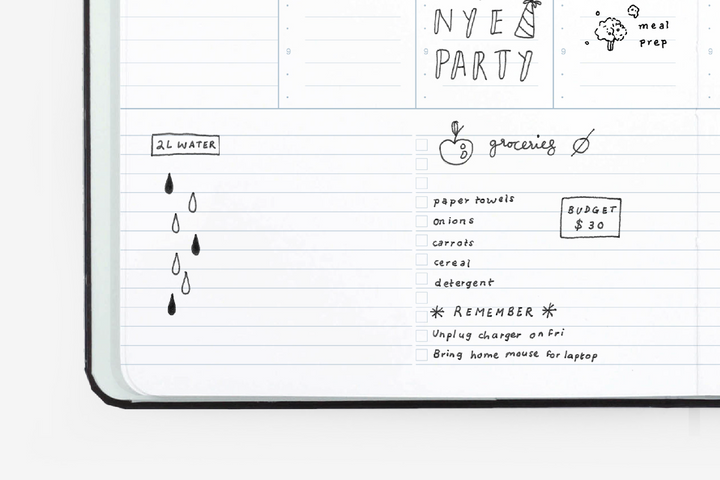 NYE
PARTY
meal
prep
9
9
9
9
2L WATER
groceries
paper towels
onions
carrots
cereal
detergent
BUDGET
$30
* REMEMBER *
Unplug charger on Fri
Bring home mouse for laptop